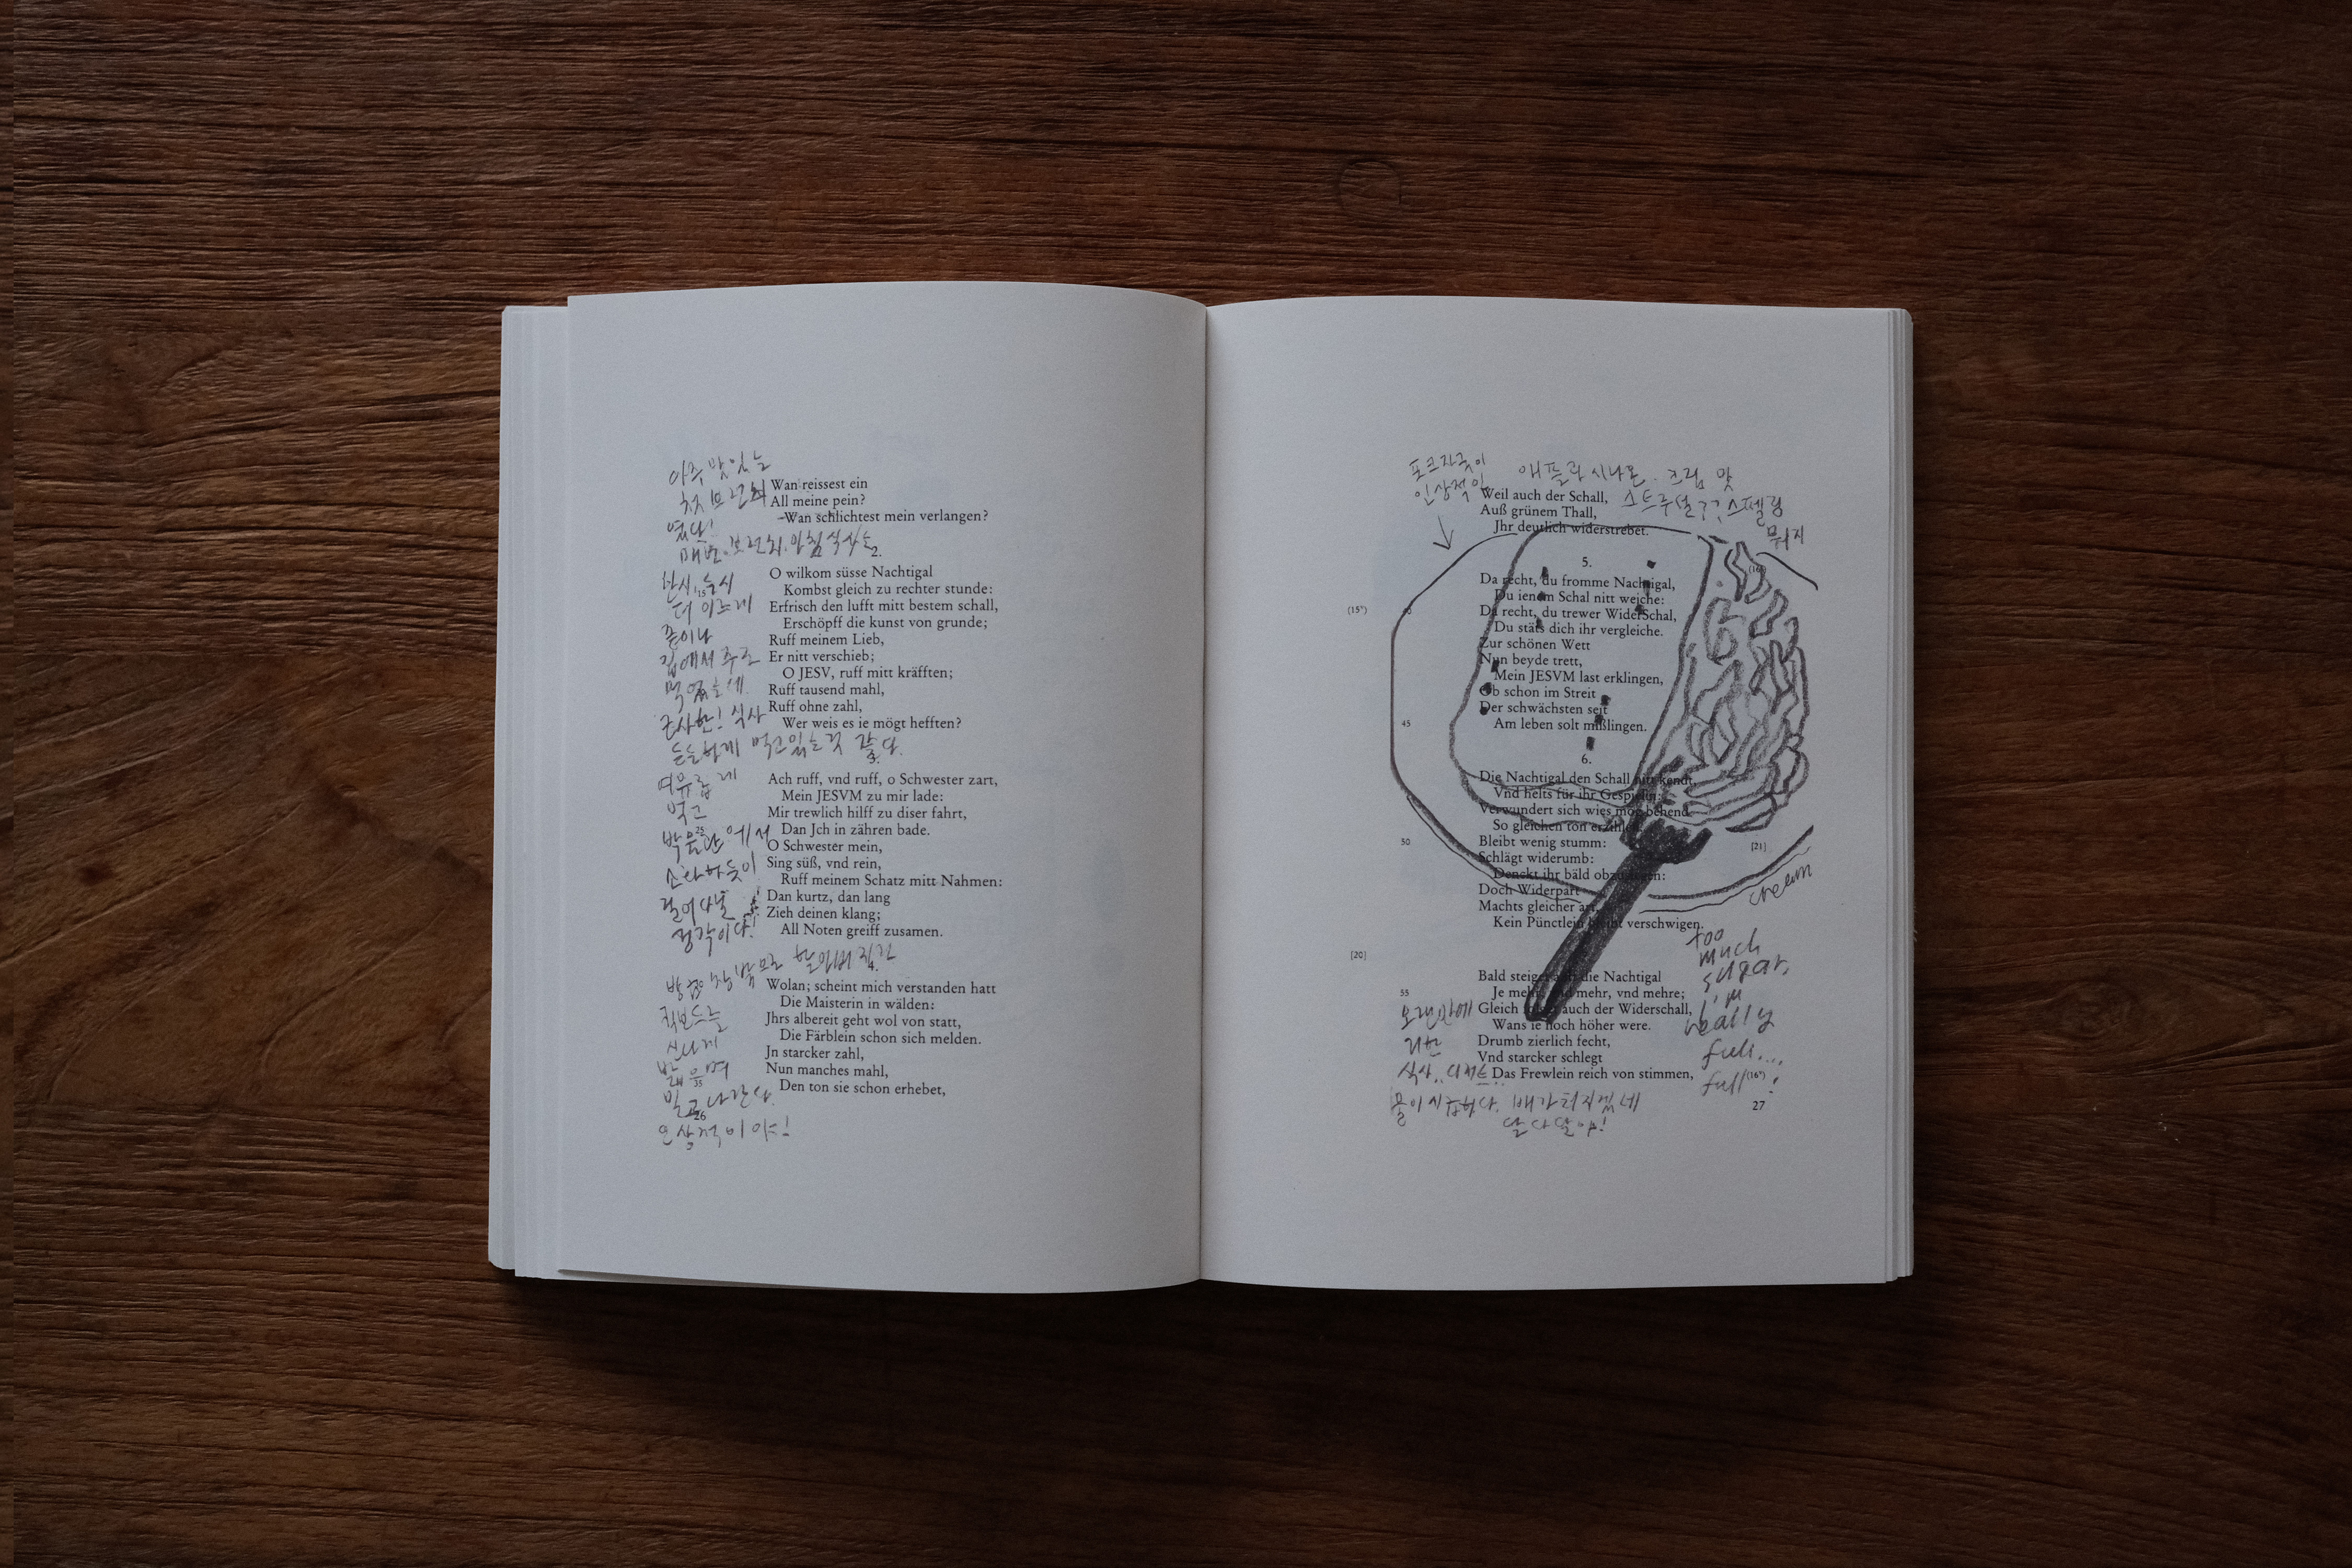 아주 맛있는
첫 브런치
였다!
매번 브런치. 아침 식사는
한시, 두시
더 이르게
집에서 주로
먹었는데
근사한! 식사
든든하게 먹고 있는 것 같다.
여유롭게
먹고
박물관에서
소화하듯이
걸어다닐
정각이다!
Wan reissest ein
All meine pein?
Wan schlichtest mein verlangen?
2.
O wilkom süsse Nachtigal
Kombst gleich zu rechter stunde:
15
Erfrisch den lufft mitt bestem schall,
Erschöpff die kunst von grunde;
Ruff meinem Lieb,
Er nitt verschieb;
O JESV, ruff mitt kräfften;
Ruff tausend mahl,
Ruff ohne zahl,
Wer weis es ie mögt hefften?
3.
Ach ruff, vnd ruff, o Schwester zart,
Mein JESVM zu mir lade:
Mir trewlich hilff zu diser fahrt,
25
Dan Jch in zähren bade.
O Schwester mein,
Sing süß, vnd rein,
Ruff meinem Schatz mitt Nahmen:
Dan kurtz, dan lang
Zieh deinen klang;
All Noten greiff zusamen.
4.
Wolan; scheint mich verstanden hatt
Die Maisterin in wälden:
Jhrs albereit geht wol von statt,
Die Färblein schon sich melden.
Jn starcker zahl,
Nun manches mahl,
35
Den ton sie schon erhebet,
26
킥보드를
신나게
밟으며
인상적이야!
포크자국이
인상적임
애플과 시나몬. 크림 맛
스트루델?? 스펠링
뭐지
Weil auch der Schall,
Auß grünem Thall,
Jhr deutlich widerstrebet.
5.
Da recht, du fromme Nachtigal,
Du ienem Schal nitt weiche:
(15ᵛ)
40
Da recht, du trewer WiderSchal,
Du stäts dich ihr vergleiche.
Zur schönen Wett
Nun beyde trett,
Mein JESVM last erklingen,
Ob schon im Streit
Der schwächsten seit
45
Am leben solt mißlingen.
6.
Die Nachtigal den Schall nitt kendt,
Vnd helts für ihr Gespielin:
Verwundert sich wies mög behend
So gleichen ton erzihlen.
50
Bleibt wenig stumm:
[21]
Schlägt widerumb:
Denckt ihr bäld obzusigen:
Doch Widerpart
Machts gleicher art,
Kein Pünctlein bleibt verschwigen.
cream
[20]
Bald steiget auff die Nachtigal
Je mehr, vnd mehr, vnd mehre;
55
Gleich folget auch der Widerschall,
Wans ie noch höher were.
Drumb zierlich fecht,
Vnd starcker schlegt
Das Frewlein reich von stimmen,
27
too
much
sugar,
i'm
really
full...
full!
오랜만에
과한
식사.. 디저트..
몸이 시큼하다. 배가 터지겠네
달다 달아!